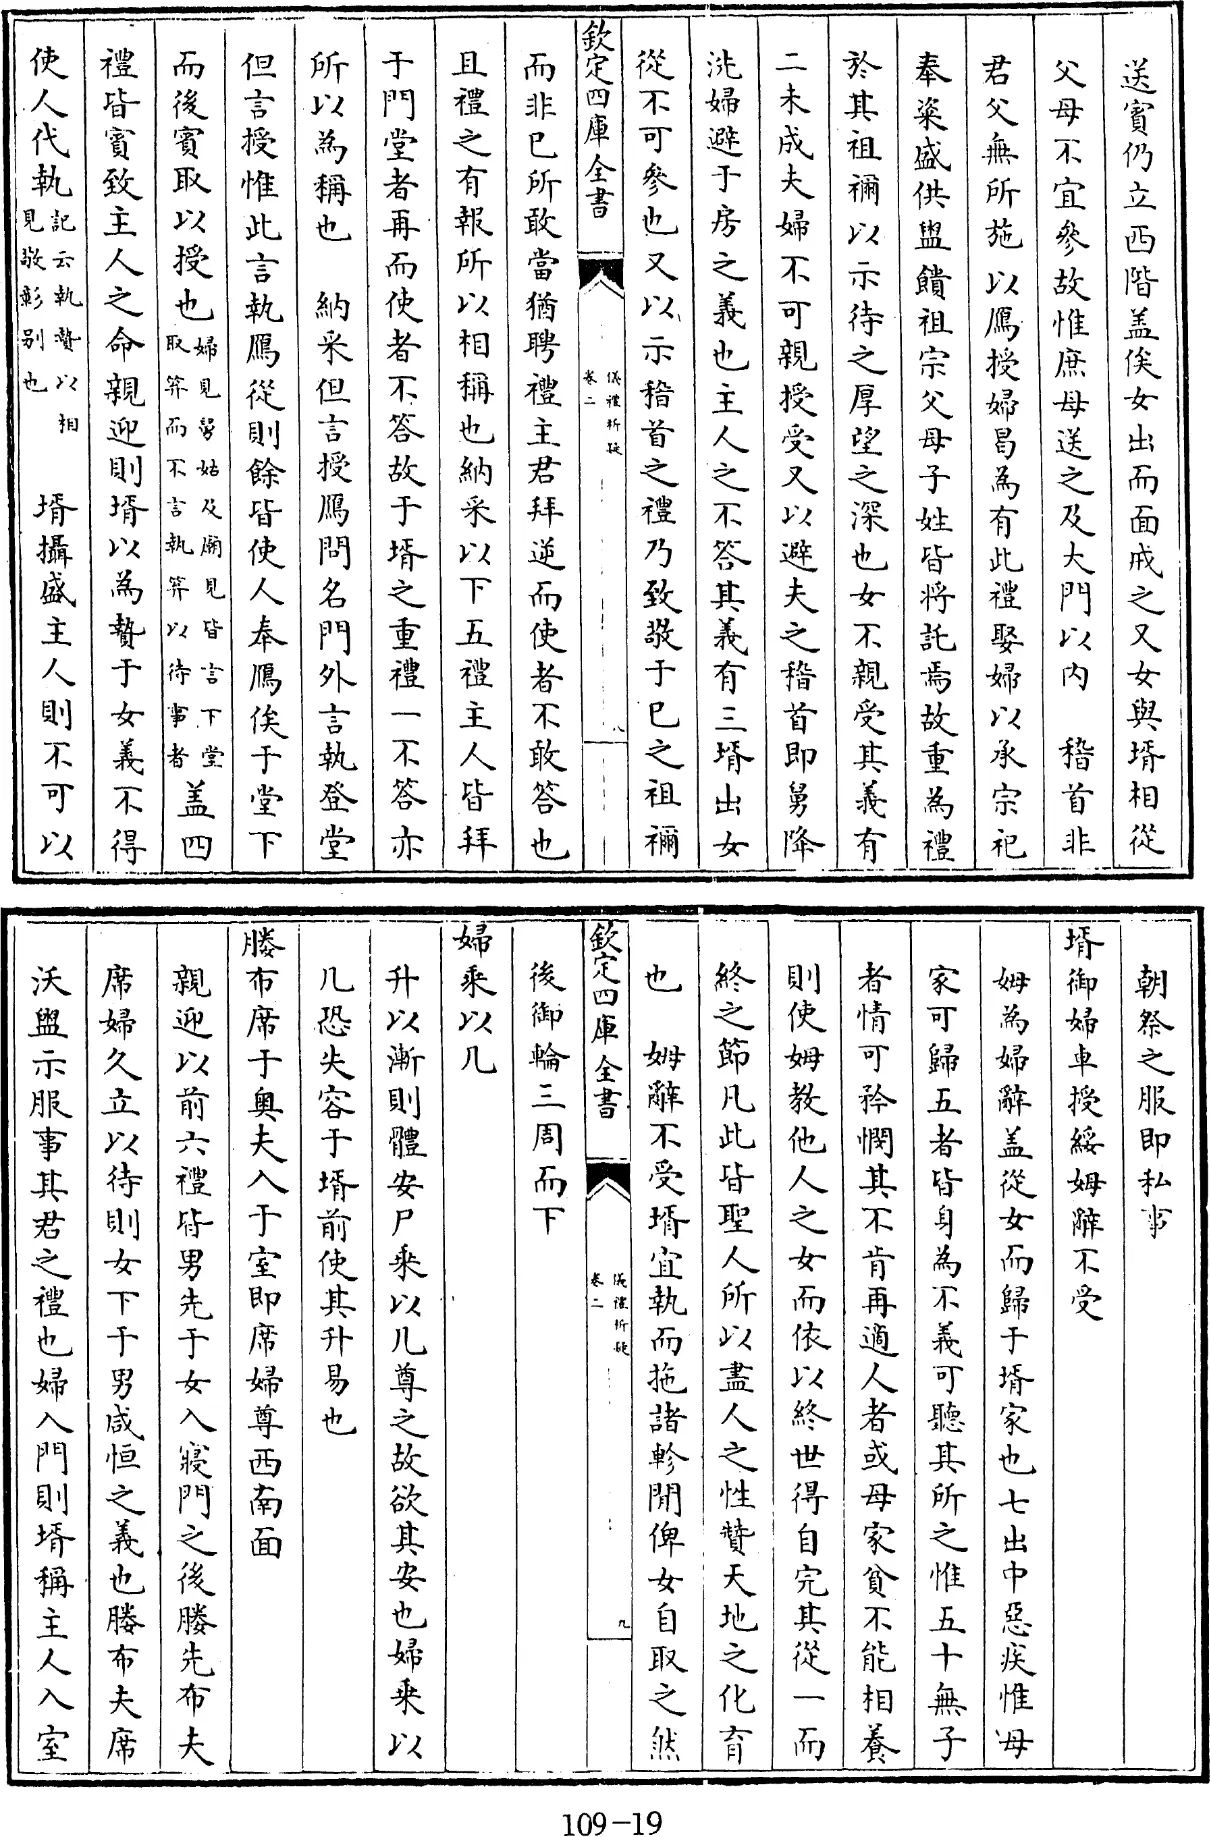 送賓仍立西階盖俟女出而面戒之又女與壻相從
父母不宜參故惟庶母送之及大門以内　稽首非
君父無所施　以鴈授婦曷為有此禮娶婦以承宗祀
奉粢盛供盥饋祖宗父母子姓皆將託焉故重為禮
於其祖禰以示待之厚望之深也女不親受其義有
二未成夫婦不可親授受又以避夫之稽首即舅降
洗婦避于房之義也主人之不答其義有三壻出女
從不可參也又以示稽首之禮乃致敬于已之祖禰
欽定四庫全書
儀禮析疑
卷二
八
而非已所敢當猶聘禮主君拜逆而使者不敢答也
且禮之有報所以相稱也納采以下五禮主人皆拜
于門堂者再而使者不答故于壻之重禮一不答亦
所以為稱也　納采但言授鴈問名門外言執登堂
但言授惟此言執鴈從則餘皆使人奉鴈俟于堂下
而後賓取以授也婦見舅姑及廟見皆言下堂取笄而不言執笄以待事者盖四
禮皆賓致主人之命親迎則壻以為贄于女義不得
使人代執記云執贄以相見敬彰别也　壻攝盛主人則不可以
朝祭之服即私事
壻御婦車授綏姆辭不受
姆為婦辭盖從女而歸于壻家也七出中惡疾惟母
家可歸五者皆身為不義可聽其所之惟五十無子
者情可矜憫其不肯再適人者或母家貧不能相養
則使姆教他人之女而依以終世得自完其從一而
終之節凡此皆聖人所以盡人之性贊天地之化育
也　姆辭不受壻宜執而拖諸軫閒俾女自取之然
欽定四庫全書
儀禮析疑
卷二
九
後御輪三周而下
婦乘以几
升以漸則體安尸乘以几尊之故欲其安也婦乘以
几恐失容于壻前使其升易也
媵布席于奥夫入于室即席婦尊西南面
親迎以前六禮皆男先于女入寢門之後媵先布夫
席婦久立以待則女下于男咸恒之義也媵布夫席
沃盥示服事其君之禮也婦入門則壻稱主人入室
109-19